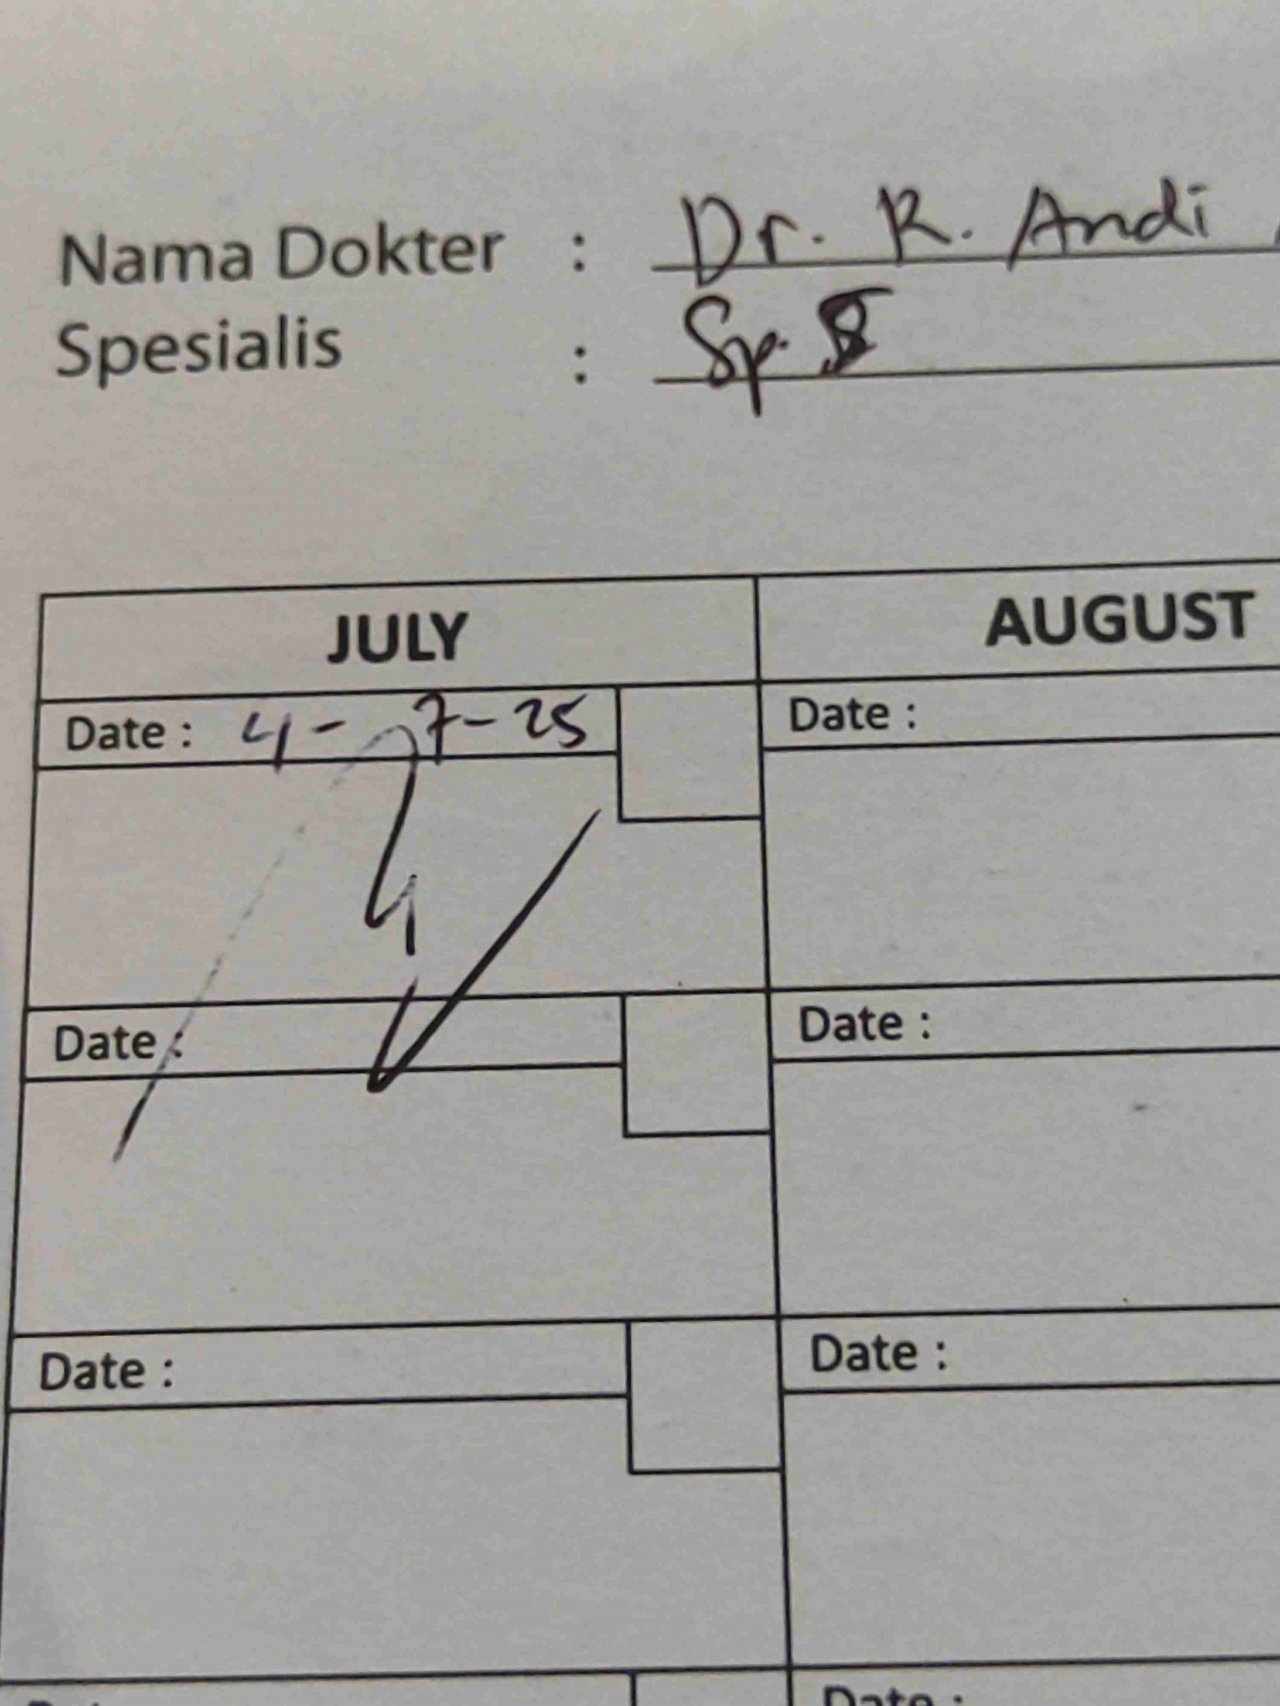 Nama Dokter : Dr. R. Andi
Spesialis : Sp.
JULY AUGUST
Date : 4-7-25 Date :
Date : Date :
Date : Date :
Date :